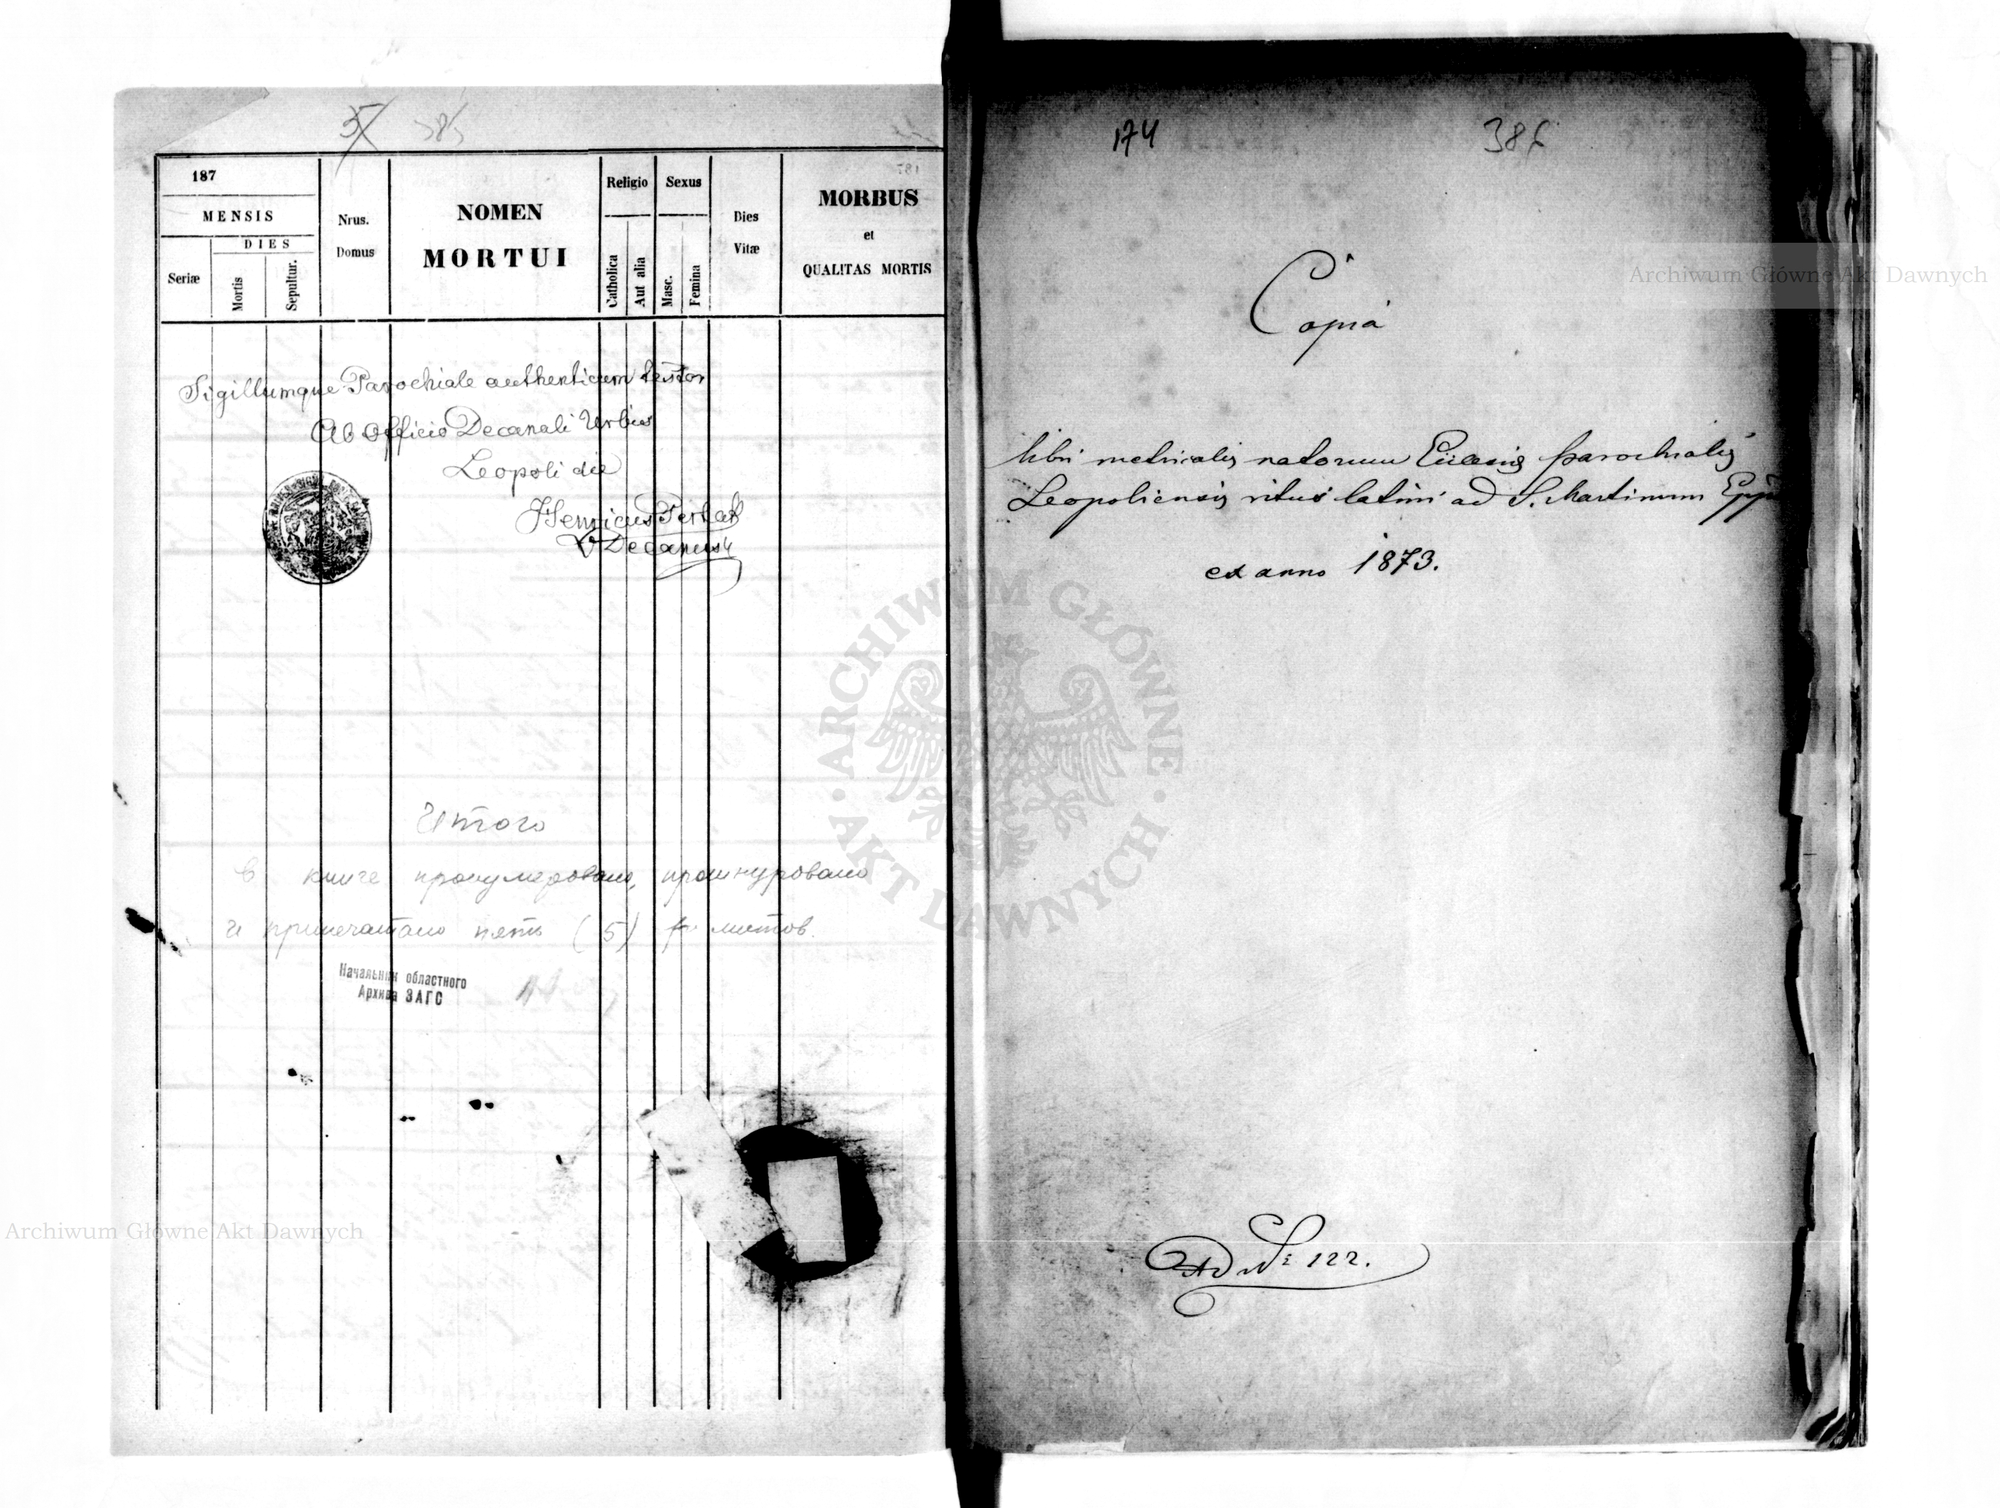 5 385
187
MENSIS
DIES
Seriæ
Mortis
Sepultur.
Nrus.
Domus
NOMEN
MORTUI
Religio
Catholica
Aut alia
Sexus
Masc.
Femina
Dies
Vitæ
MORBUS
et
QUALITAS MORTIS
Sigillumque Parochiale authenticum testor
Ab Officio Decanali Urbis
Leopoli die
Henricus
V Decanus
Итого
в книге пронумеровано, прошнуровано
и припечатано пять (5) листов.
Начальник областного
Архива ЗАГС
174 386
Copia
libri metricalis natorum Ecclesiæ parochialis
Leopoliensis ritus latini ad S. Martinum Epp
ex anno 1873.
Ad № 122.
Archiwum Główne Akt Dawnych
ARCHIWUM GŁÓWNE · AKT DAWNYCH ·
Archiwum Główne Akt Dawnych